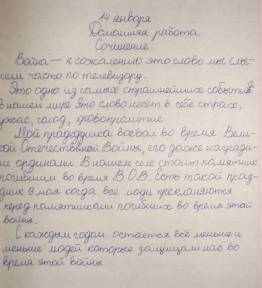 14 января
Домашняя работа
Сочинение
Война – к сожалению это слово мы слы-
шим часто по телевизору.
Это одно из самых страшнейших событий
в нашем мире это слово несёт в себе страх,
ужас, голод, кровопролитие.
Мой прадедушка воевал во время Вели-
кой Отечественной Войны, его даже наградили
орденами. В нашем селе стоит памятник
погибшим во время В.О.В. Есть такой празд-
дник 9 мая когда все люди преклоняются
перед памятниками погибших во время этой
войны.
С каждым годом остаётся всё меньше и
меньше людей которые защищали нас во
время этой войны